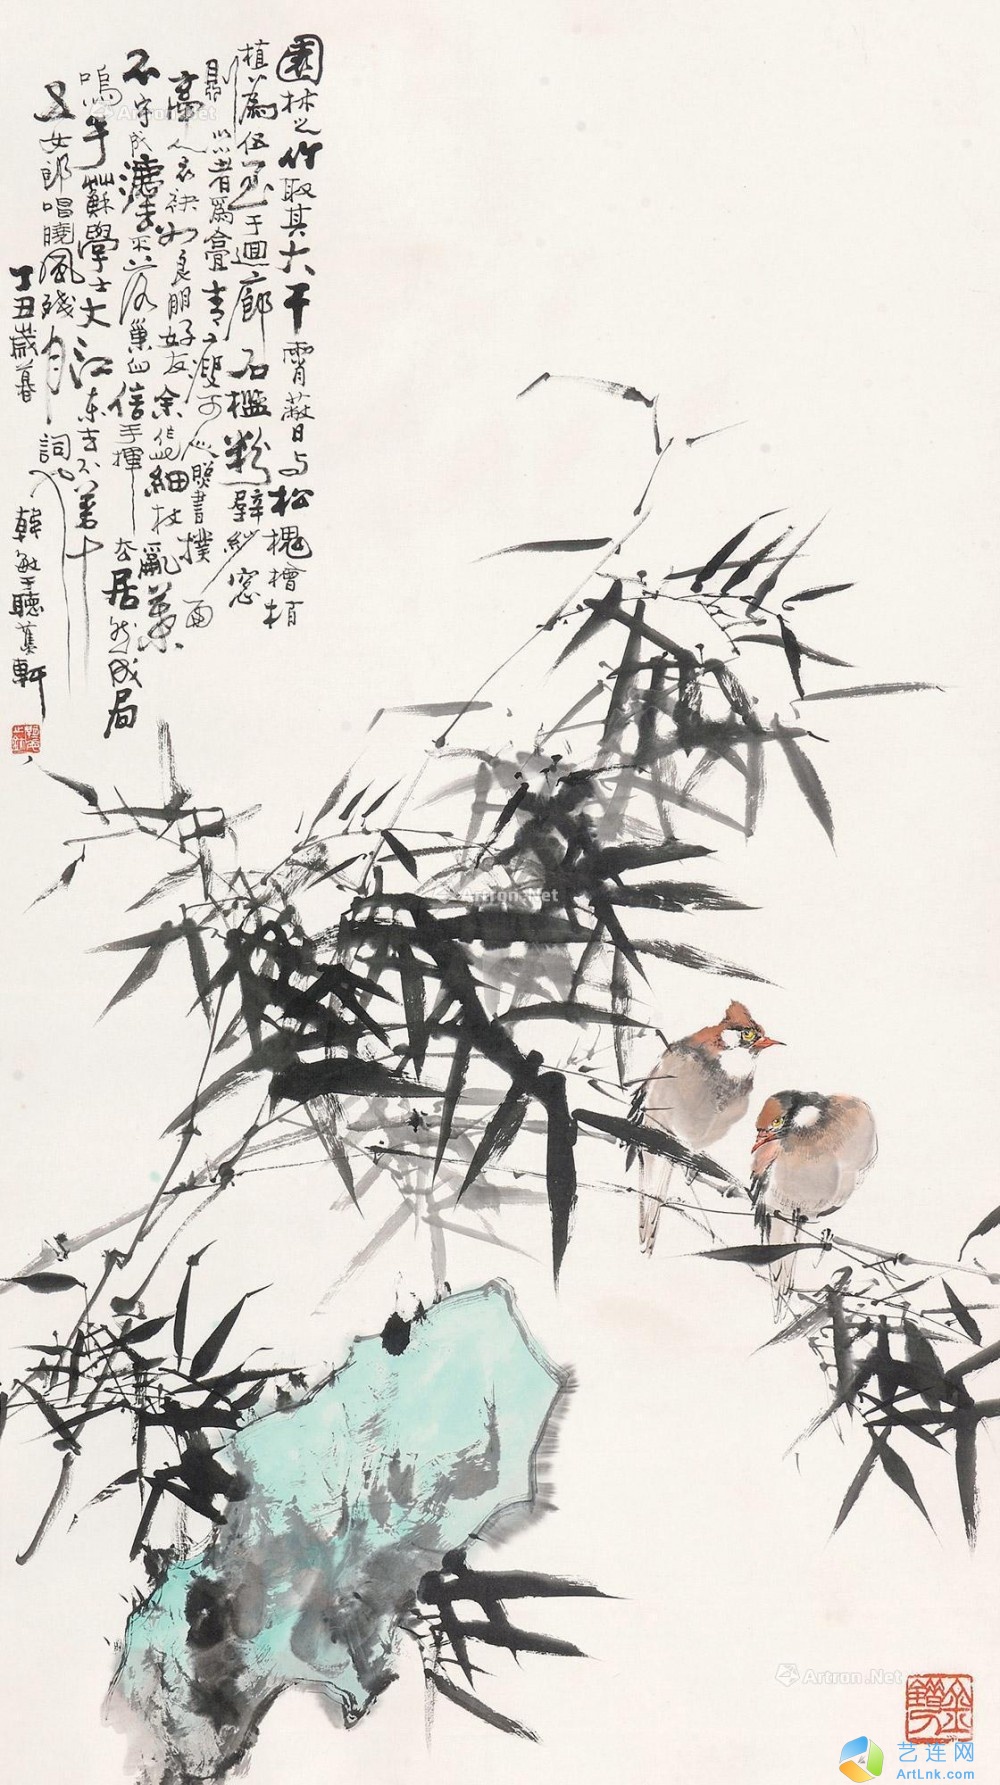 園林之竹取其大干霄蔽日与松槐檜栢
植爲伍至于迴廊石檻粉壁紗窓
爲青可人書撲面
高人衣袂如良朋好友余作此細枝亂葉
不守成落信手揮居然成局
嗚乎蘇學士大江東去不若十
五女郎唱曉風殘月詞也
丁丑歲暮 韓敏于聽蕉軒
Artron.Net
Artron.Net
Artron.Net
艺连网
ArtLnk.com